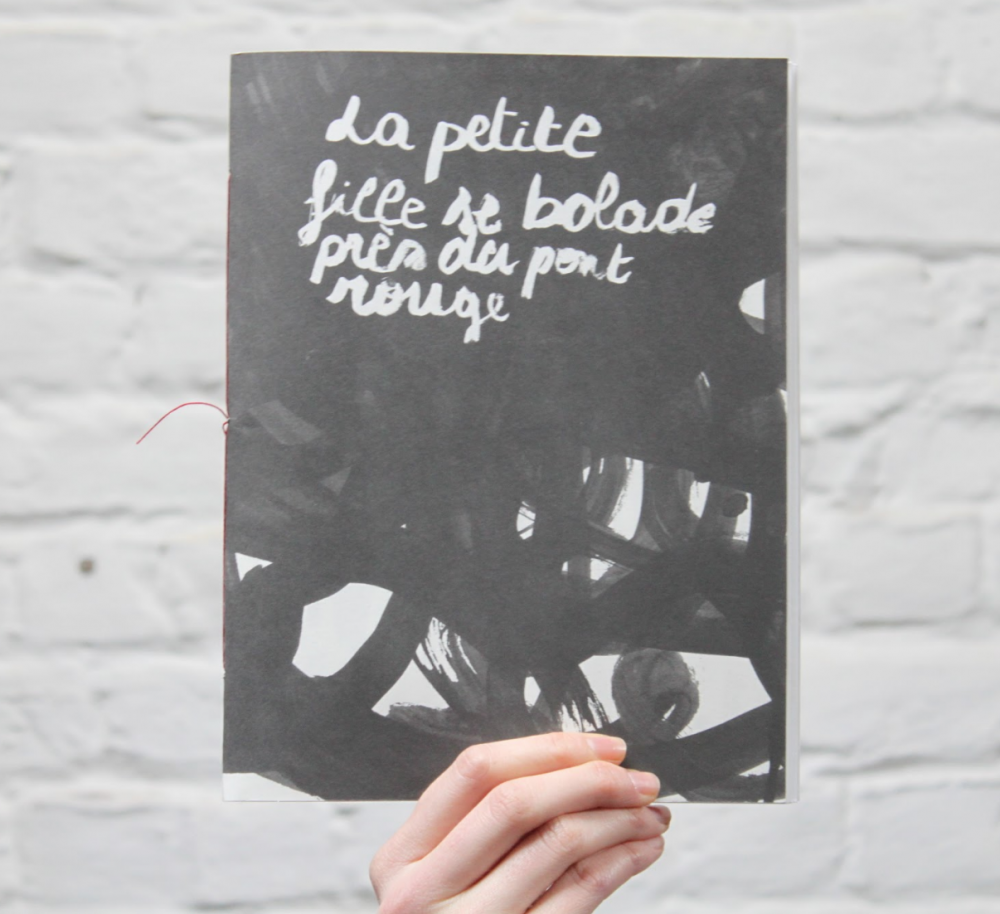 La petite
fille se bolade
près du pont
rouge